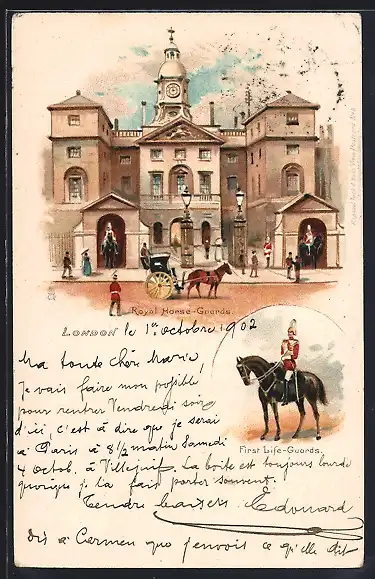 Royal Horse-Guards.
LONDON le 1er octobre 1902
Ma toute chère Marie,
Je vais faire mon possible
pour rentrer Vendredi soir
d'ici, c'est à dire que je serai
à Paris à 8 1/2 matin Samedi
4 Octob. à Villejuif. La boîte est toujours lourde
quoique je la fait porter souvent.
First Life-Guards.
Tendre baisers Edouard
Dis à Carmen que j'envoit ce qu'elle dit